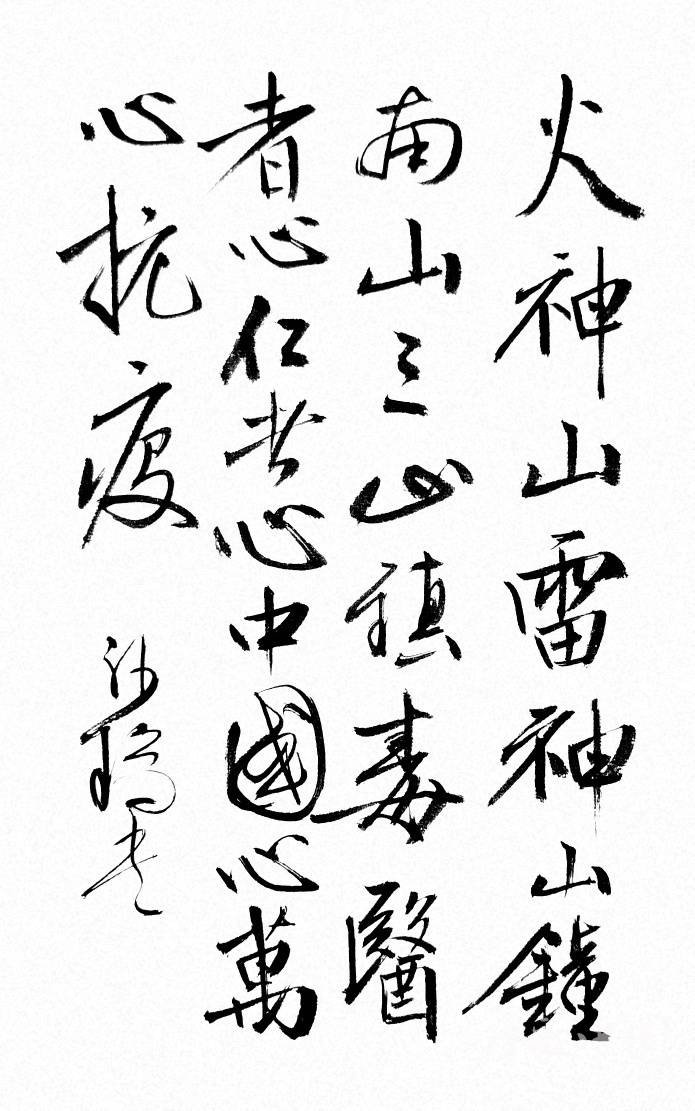 火神山雷神山鐘
南山三山鎮毒醫
者心仁者心中國心萬
心抗疫